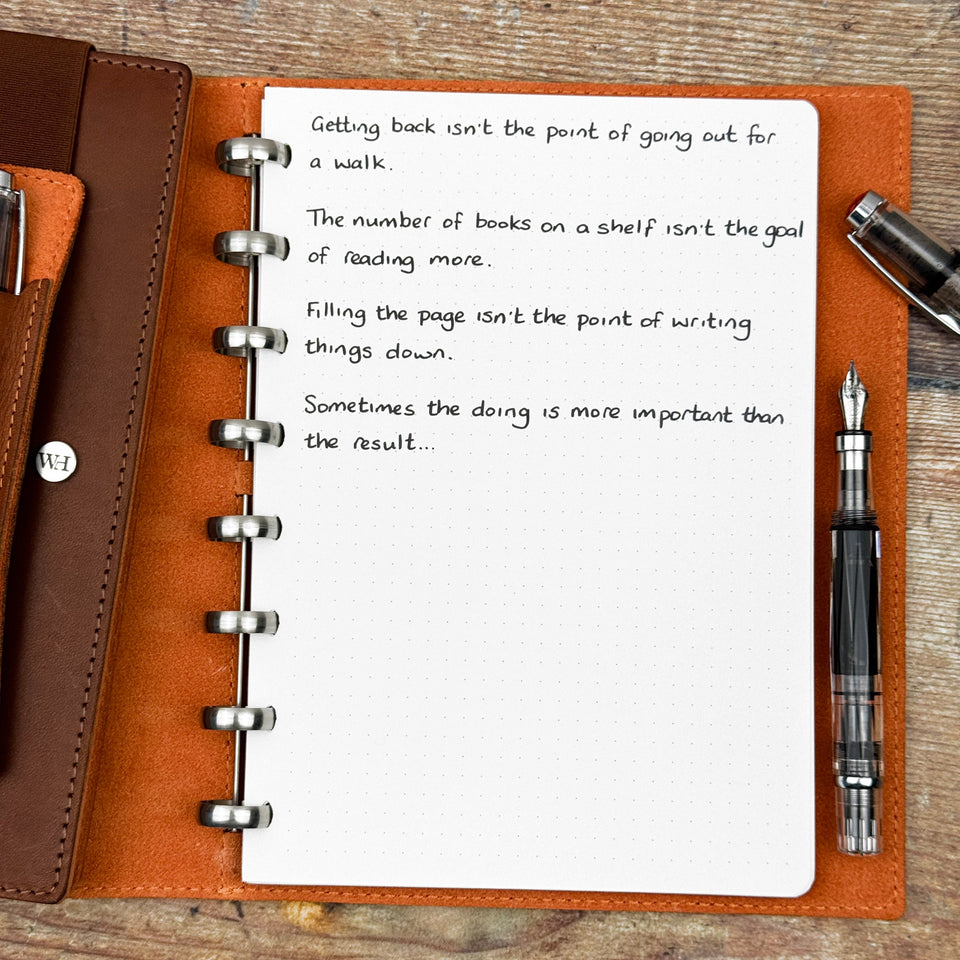 Getting back isn't the point of going out for
a walk.
The number of books on a shelf isn't the goal
of reading more.
Filling the page isn't the point of writing
things down.
Sometimes the doing is more important than
the result...
WH